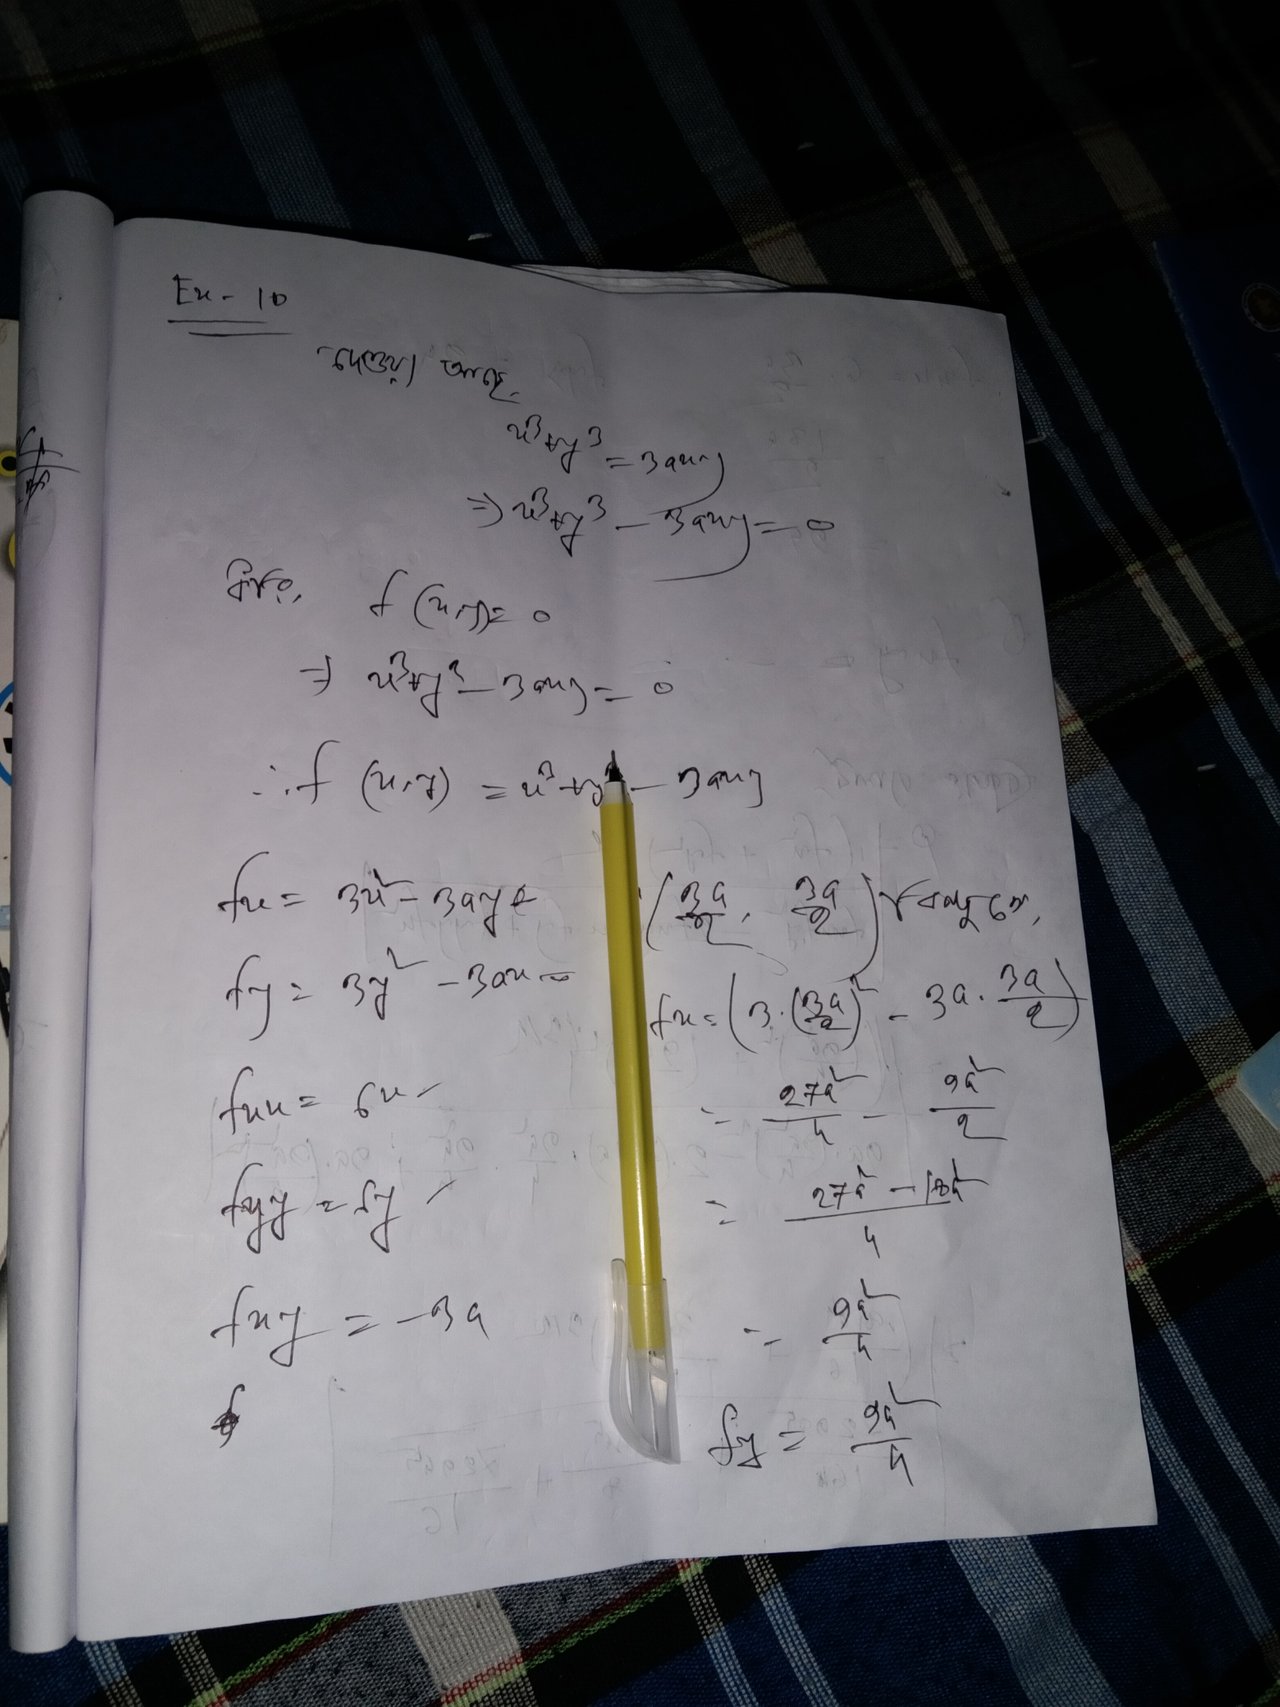 Ex - 10
দেওয়া আছে,
x³+y³ = 3axy
⇒ x³+y³ - 3axy = 0
ধরি, f(x,y) = 0
⇒ x³+y³ - 3axy = 0
∴ f(x,y) = x³+y³ - 3axy
fx = 3x² - 3ay
fy = 3y² - 3ax
fxx = 6x
fyy = 6y
fxy = -3a
(3a/2, 3a/2) বিন্দুতে,
fx = (3·(3a/2)² - 3a·3a/2)
= 27a²/4 - 9a²/2
= (27a² - 18a²)/4
= 9a²/4
fy = 9a²/4